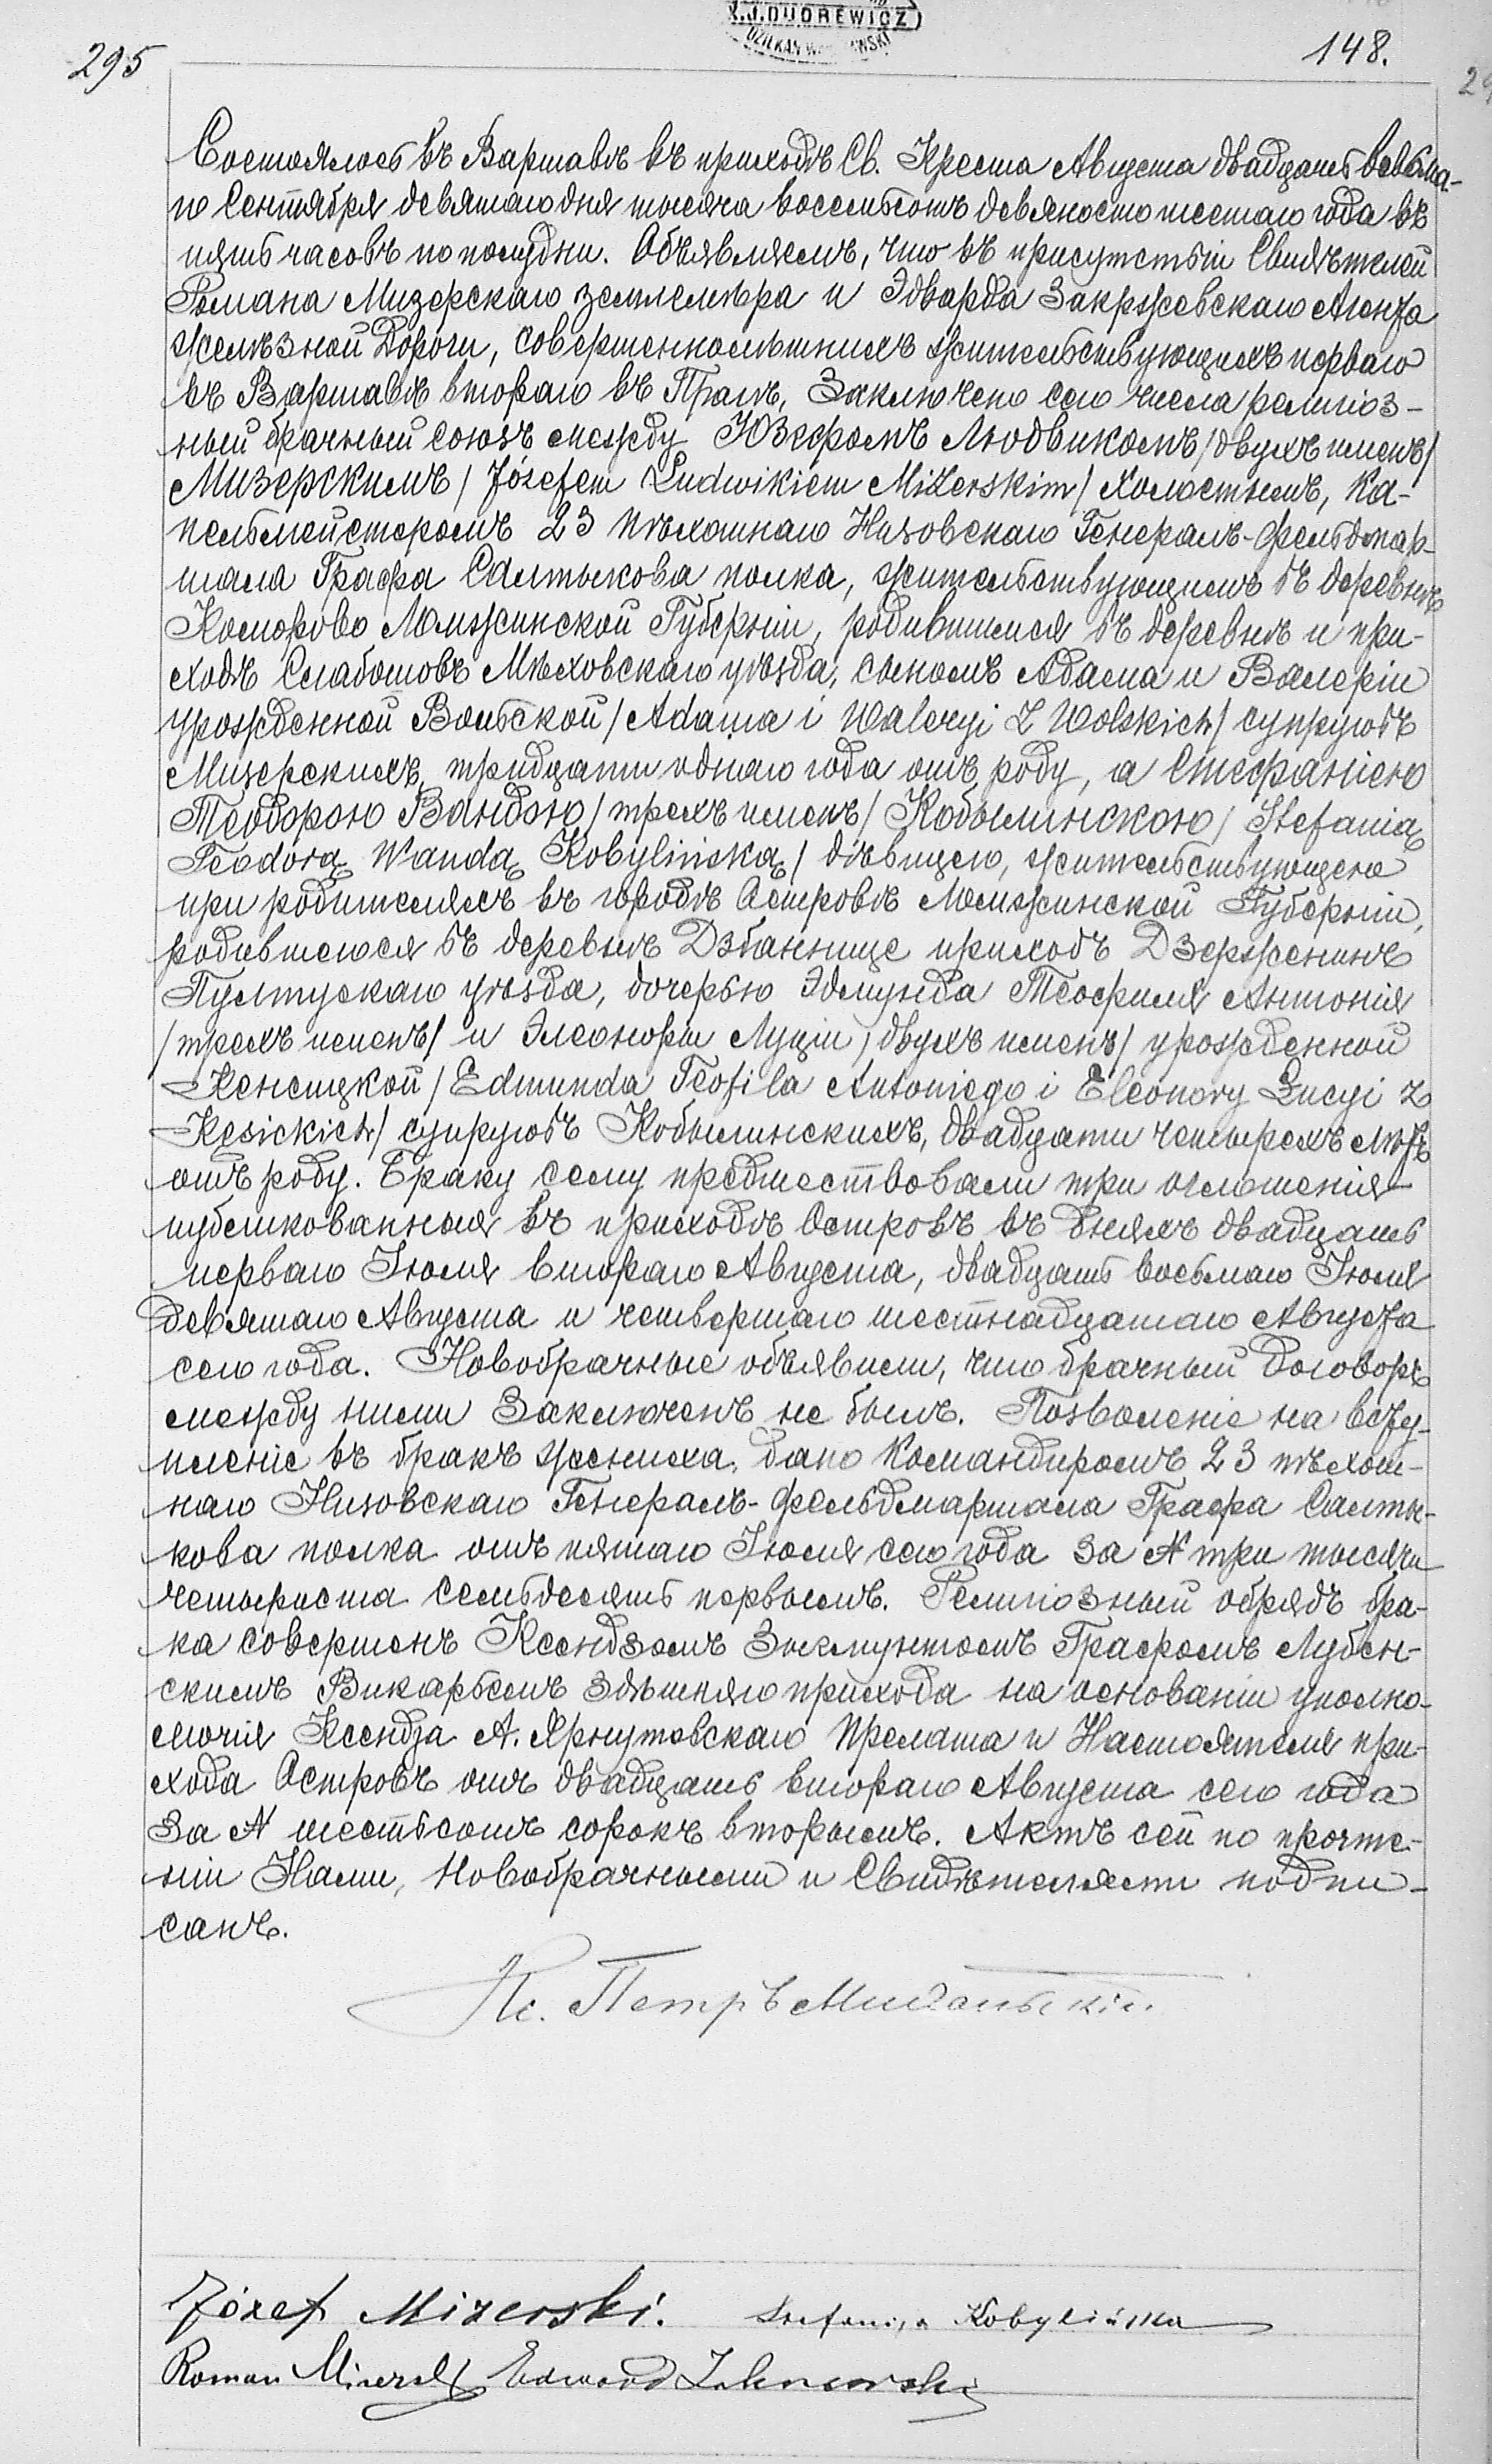 X.J.DUDREWICZ
DZIEKAN WARSZAWSKI
295
148.
Состоялось въ Варшавѣ въ приходѣ Св. Креста Августа двадцать восьма-
го Сентября девятаго дня тысяча восемьсотъ девяносто шестаго года въ
пять часовъ по полудни. Объявляемъ, что въ присутствіи Свидѣтелей
Романа Мизерскаго землемѣра и Эдварда Закржевскаго Агента
желѣзной Дороги, совершеннолѣтнихъ жительствующихъ перваго
въ Варшавѣ втораго въ Прагѣ, Заключено сего числа религіоз-
ный брачный союзъ между Юзефомъ Людвикомъ /двухъ именъ/
Мизерскимъ /Józefem Ludwikiem Mizerskim/ Холостымъ, Ка-
пельмейстеромъ 23 пѣхотнаго Низовскаго Генералъ-Фельдмар-
шала Графа Салтыкова полка, жительствующимъ въ деревнѣ
Коморово Ломжинской Губерніи, родившимся въ деревнѣ и при-
ходѣ Слабошовъ Мѣховскаго уѣзда, сыномъ Адама и Валеріи
урожденной Вольской /Adama i Waleryi z Wolskich/ супруговъ
Мизерскихъ, тридцати одного года отъ роду, а Стефаніею
Теодорою Вандою /трехъ именъ/ Кобылинскою /Stefanią
Teodorą Wandą Kobylińską/ дѣвицею, жительствующею
при родителяхъ въ городѣ Островѣ Ломжинской Губерніи,
родившеюся въ деревнѣ Дзбанница приходѣ Дзержениnѣ
Пултускаго уѣзда, дочерью Эдмунда Теофиля Антонія
/трехъ именъ/ и Элеоноры Луціи /двухъ именъ/ урожденной
Кенсицкой /Edmunda Teofila Antoniego i Eleonory Lucyi z
Kęsickich/ супруговъ Кобылинскихъ, двадцати четырехъ лѣтъ
отъ роду. Браку сему предшествовали три оглашенія
публикованныя въ приходѣ Островъ въ дняхъ двадцать
перваго Іюля втораго Августа, двадцать восьмаго Іюля
девятаго Августа и четвертаго шестнадцатаго Августа
сего года. Новобрачные объявили, что брачный договоръ
между ними Заключенъ не былъ. Позволеніе на всту-
пленіе въ бракъ жениха, дано Командиромъ 23 пѣхот-
наго Низовскаго Генералъ-Фельдмаршала Графа Салты-
кова полка отъ пятаго Іюля сего года за N три тысячи
четыреста семьдесятъ первымъ. Религіозный обрядъ бра-
ка совершенъ Ксендзомъ Зыгмунтомъ Графомъ Лубен-
скимъ Викарьемъ здѣшняго прихода на основаніи уполно-
мочія Ксендза А. Ярнутовскаго Прелата и Настоятеля при-
хода Островъ отъ двадцать втораго Августа сего года
За N шестьсотъ сорокъ вторымъ. Актъ сей по прочте-
ніи Нами, Новобрачными и Свидѣтелями подпи-
санъ.
Кс. Петръ
Józef Mizerski. Stefanija Kobylińska
Roman Mizerski Edward Zakrzewski